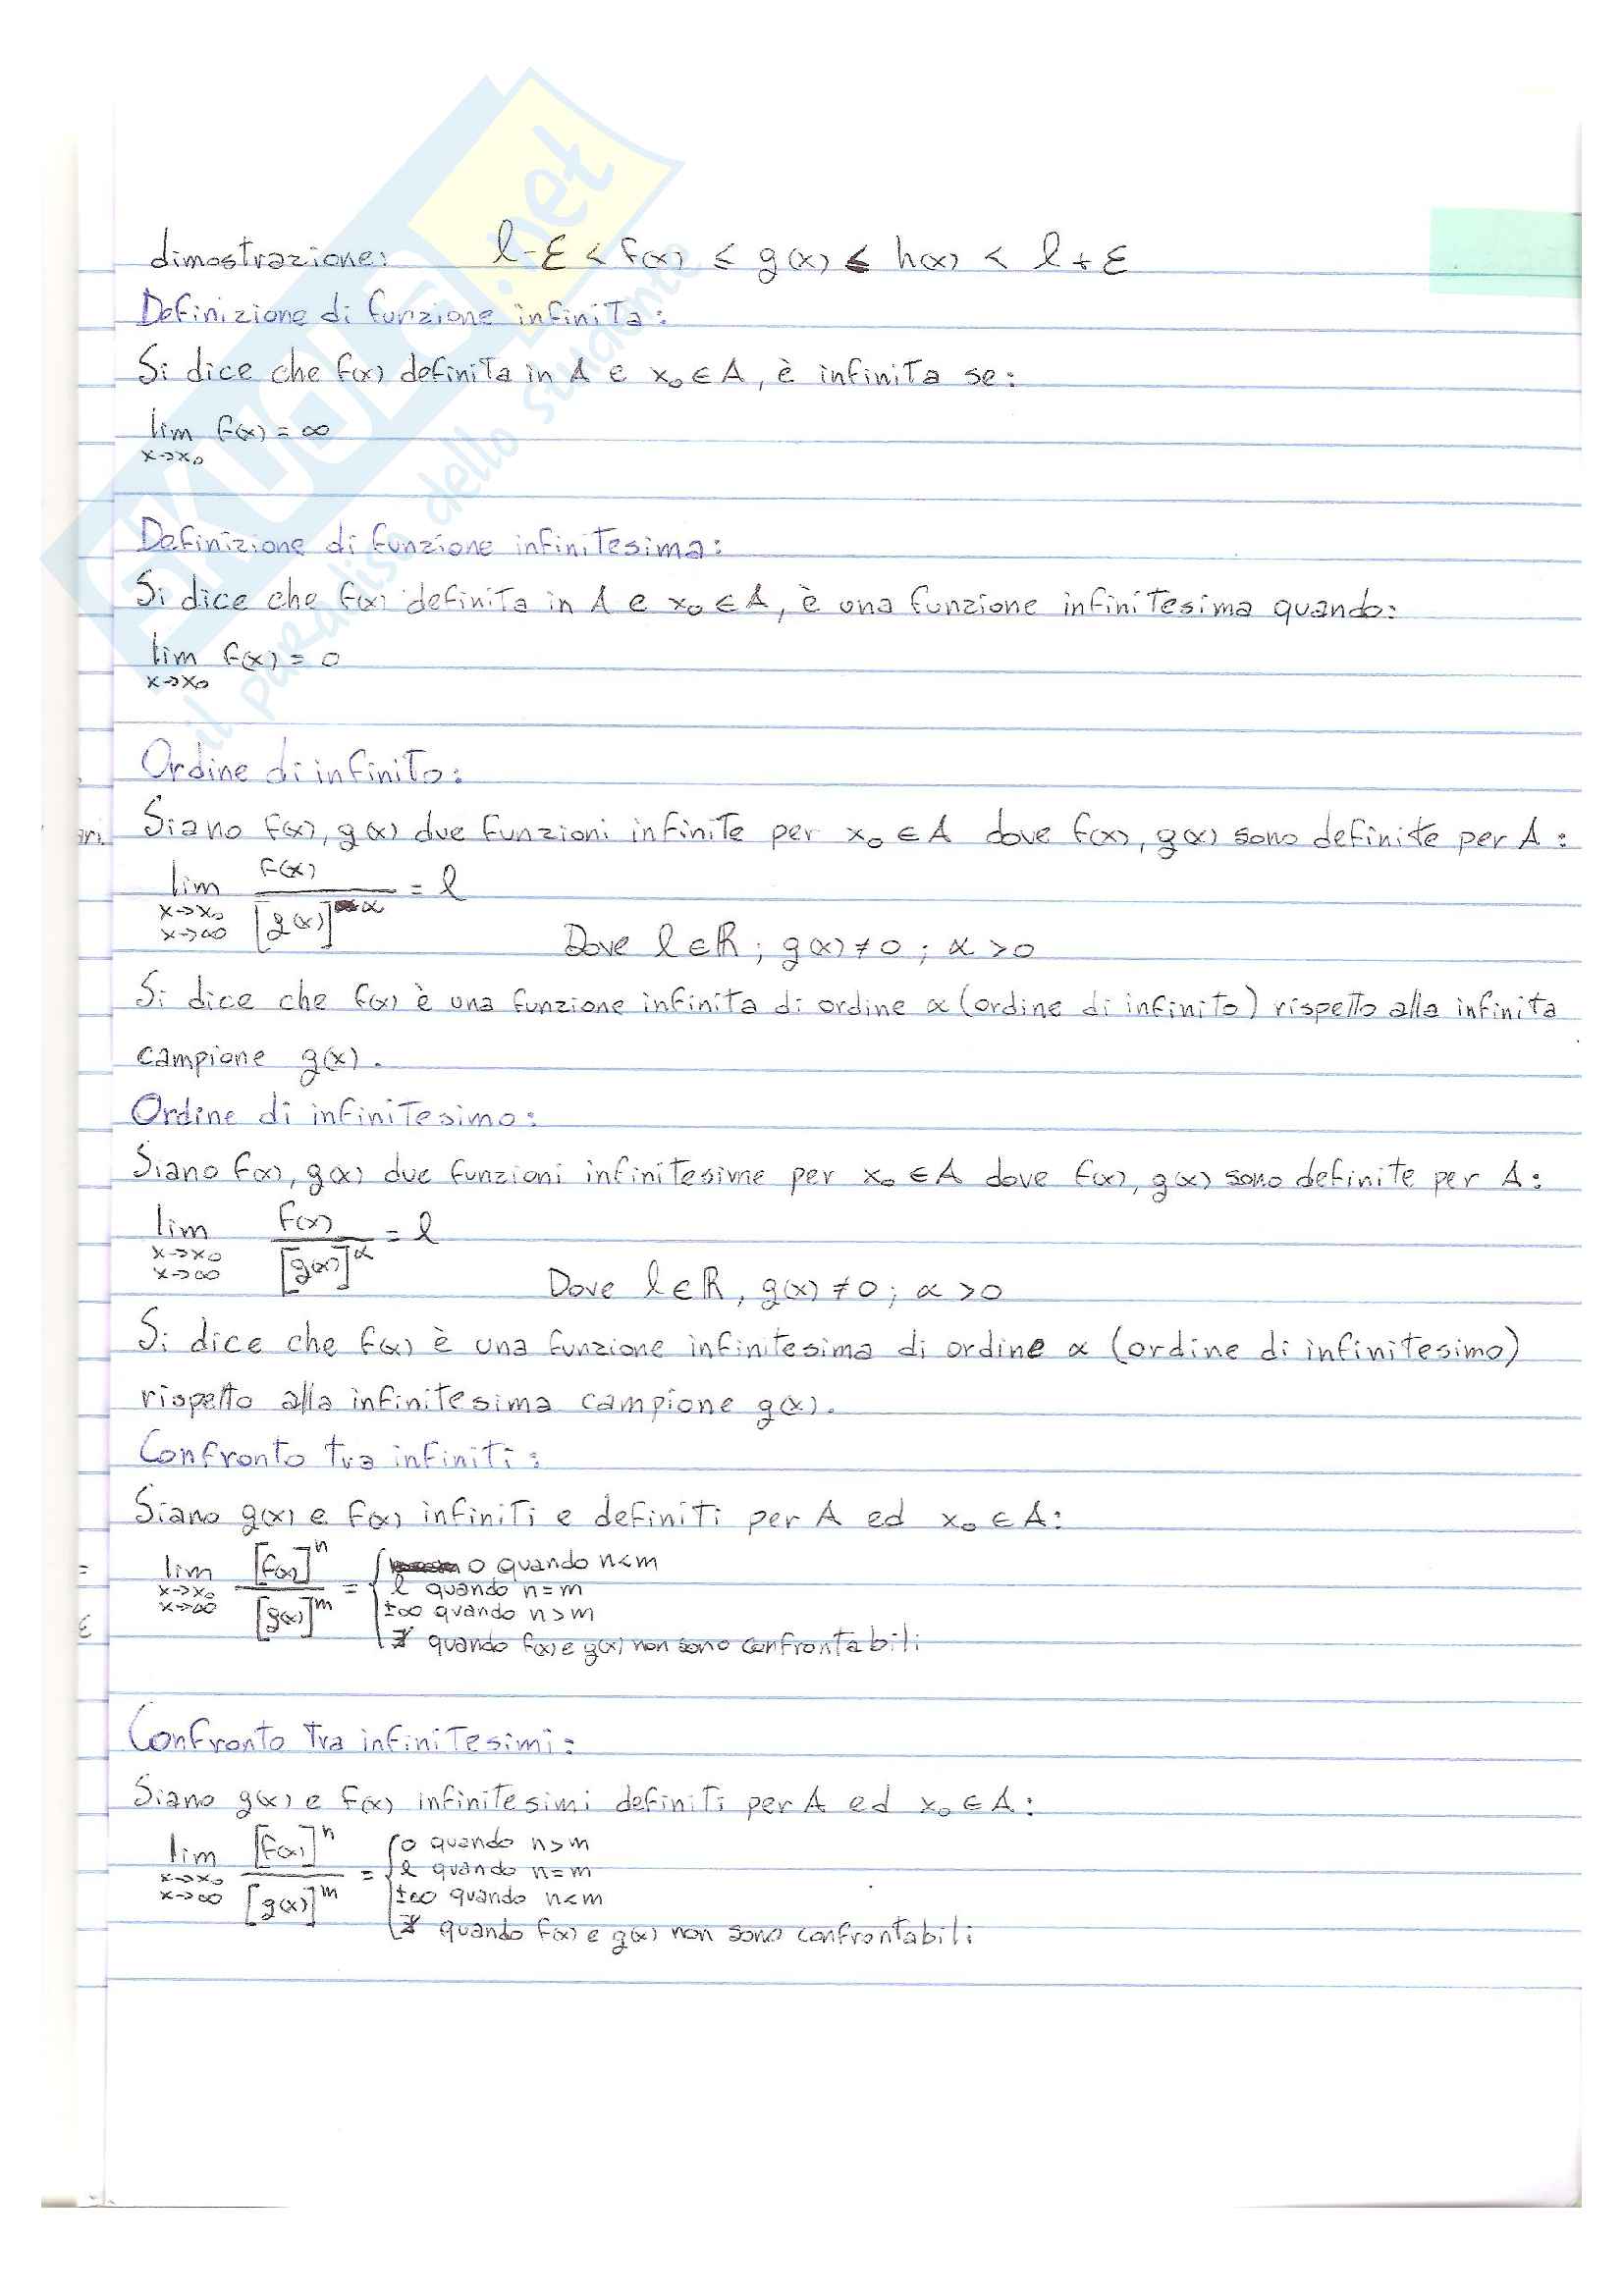 SKUOLA.net
il paradiso dello studente
dimostrazione: l-ε < f(x) ≤ g(x) ≤ h(x) < l+ε
Definizione di funzione infinita:
Si dice che f(x) definita in A e x₀ ∈ A, è infinita se:
lim f(x) = ∞
x→x₀
Definizione di funzione infinitesima:
Si dice che f(x) definita in A e x₀ ∈ A, è una funzione infinitesima quando:
lim f(x) = 0
x→x₀
Ordine di infinito:
Siano f(x), g(x) due funzioni infinite per x₀ ∈ A dove f(x), g(x) sono definite per A:
lim f(x)/[g(x)]^α = l
x→x₀
x→∞
Dove l ∈ R; g(x) ≠ 0; α > 0
Si dice che f(x) è una funzione infinita di ordine α (ordine di infinito) rispetto alla infinita
campione g(x).
Ordine di infinitesimo:
Siano f(x), g(x) due funzioni infinitesime per x₀ ∈ A dove f(x), g(x) sono definite per A:
lim f(x)/[g(x)]^α = l
x→x₀
x→∞
Dove l ∈ R, g(x) ≠ 0; α > 0
Si dice che f(x) è una funzione infinitesima di ordine α (ordine di infinitesimo)
rispetto alla infinitesima campione g(x).
Confronto tra infiniti:
Siano g(x) e f(x) infiniti e definiti per A ed x₀ ∈ A:
lim [f(x)]^n/[g(x)]^m = { 0 quando n<m
x→x₀
x→∞
l quando n=m
±∞ quando n>m
∄ quando f(x) e g(x) non sono confrontabili
Confronto tra infinitesimi:
Siano g(x) e f(x) infinitesimi definiti per A ed x₀ ∈ A:
lim [f(x)]^n/[g(x)]^m = { 0 quando n>m
x→x₀
x→∞
l quando n=m
±∞ quando n<m
∄ quando f(x) e g(x) non sono confrontabili